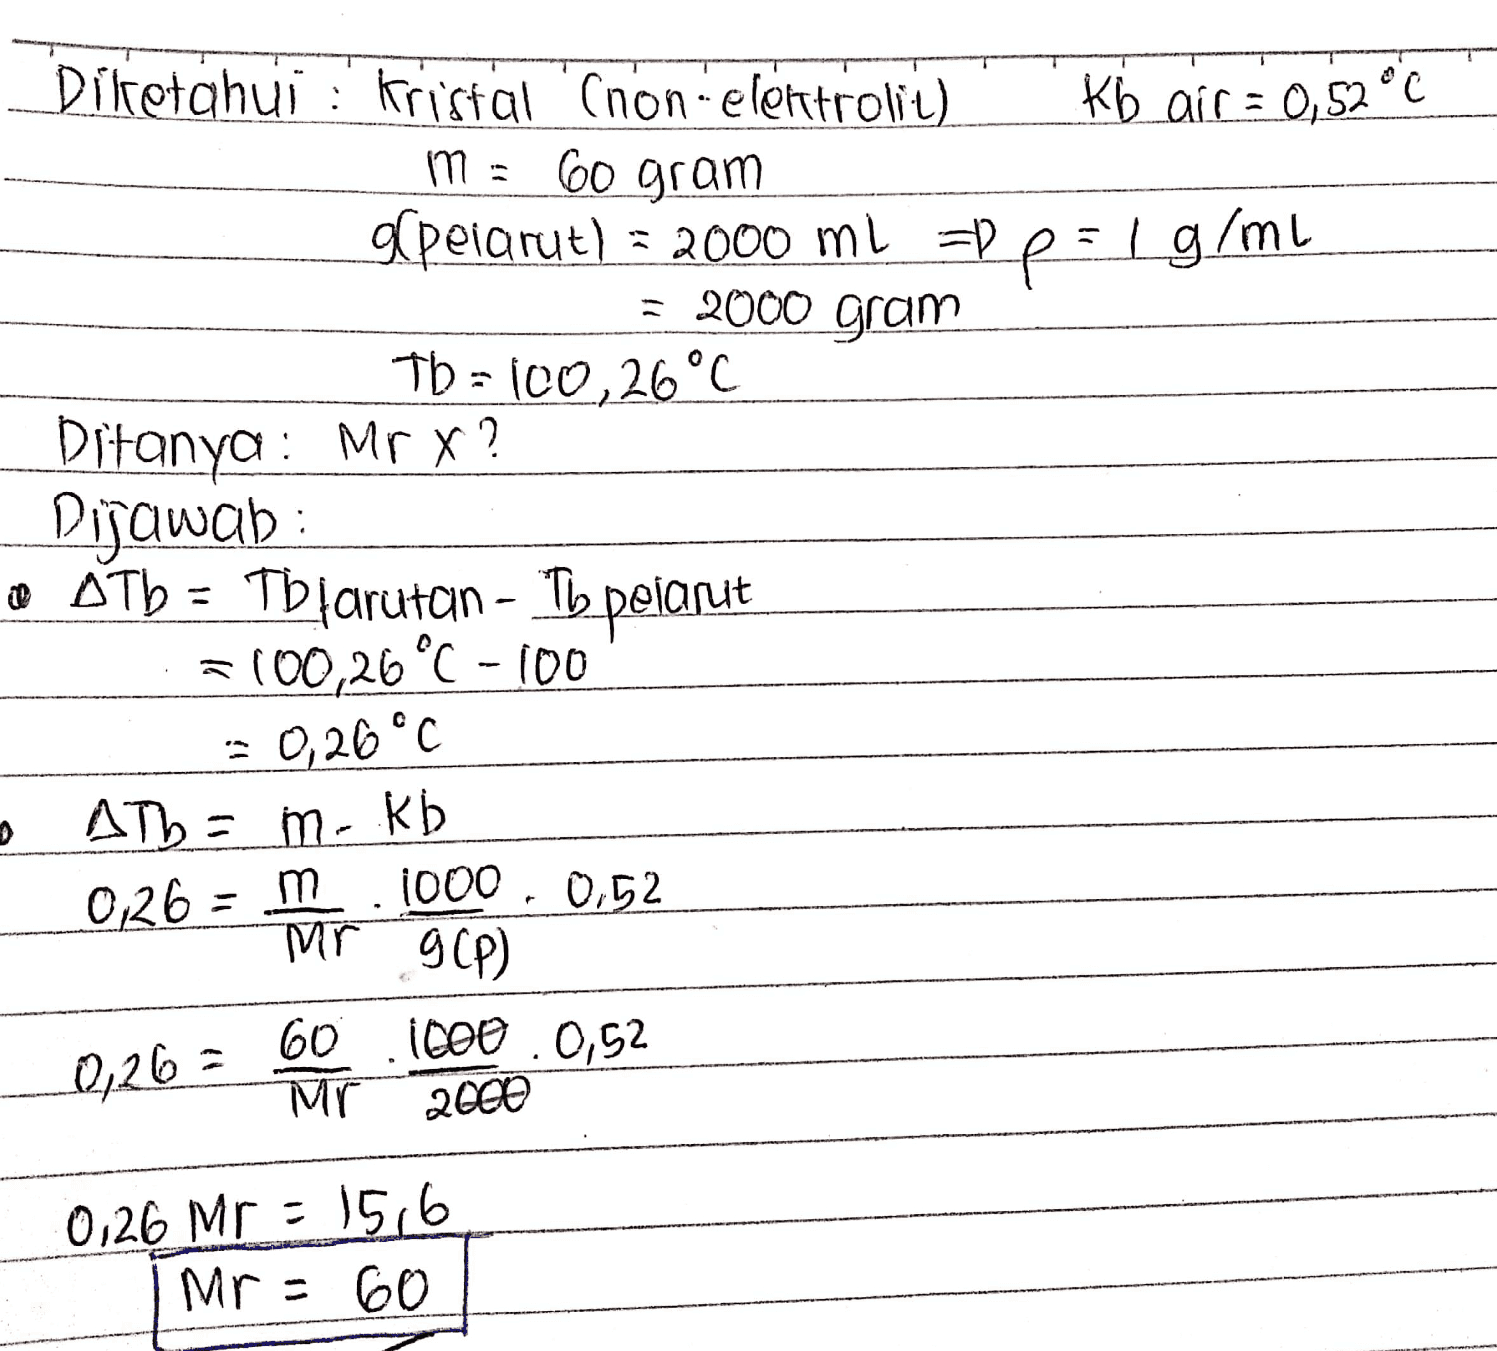 Diketahui : Kristal (non-elektrolit) Kb air = 0,52 °C
m = 60 gram
g(pelarut) = 2000 mL => ρ = 1 g/mL
= 2000 gram
Tb = 100,26 °C
Ditanya : Mr x ?
Dijawab :
• ΔTb = Tb larutan - Tb pelarut
= 100,26 °C - 100
= 0,26 °C
• ΔTb = m . Kb
0,26 = m/Mr . 1000/g(p) . 0,52
0,26 = 60/Mr . 1000/2000 . 0,52
0,26 Mr = 15,6
Mr = 60